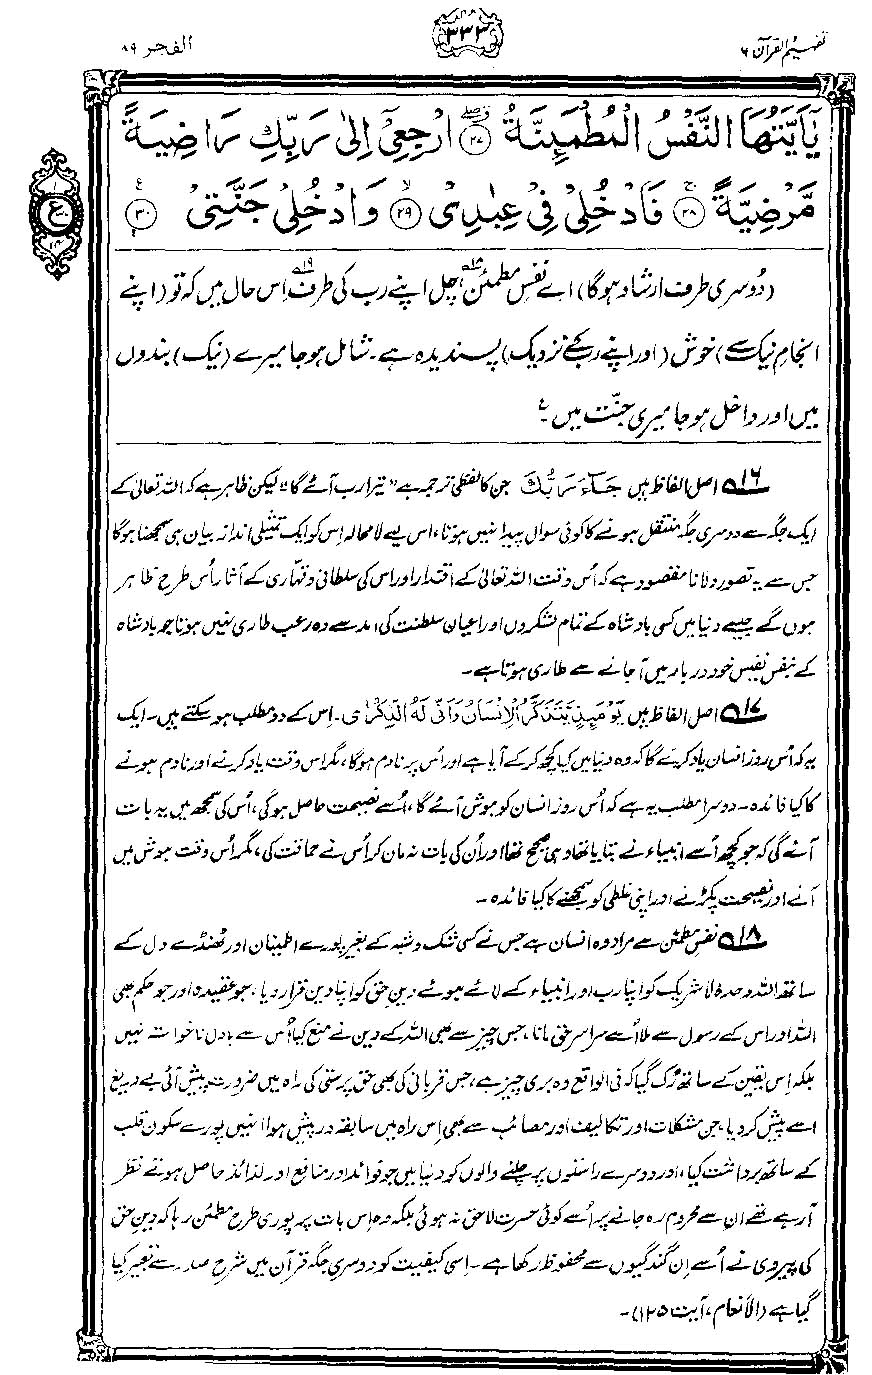 تفہیم القرآن ۶
۳۳۳
الفجر ۸۹
يٰۤاَيَّتُهَا النَّفْسُ الْمُطْمَىِٕنَّةُ ﴿۲۷﴾ ارْجِعِيْۤ اِلٰى رَبِّكِ رَاضِيَةً
مَّرْضِيَّةً ﴿۲۸﴾ فَادْخُلِيْ فِيْ عِبٰدِيْ ﴿۲۹﴾ وَادْخُلِيْ جَنَّتِيْ ﴿۳۰﴾
(دُوسری طرف ارشاد ہوگا) اے نفسِ مطمئن۱۸، چل اپنے رب کی طرف۱۹ اِس حال میں کہ تو (اپنے
انجامِ نیک سے) خوش (اور اپنے رب کے نزدیک) پسندیدہ ہے۔ شامل ہو جا میرے (نیک) بندوں
میں اور داخل ہو جا میری جنّت میں۔ ؏
۱۶ اصل الفاظ ہیں جَآءَ رَبُّكَ جن کا لفظی ترجمہ ہے ”تیرا رب آئے گا“ لیکن ظاہر ہے کہ اللہ تعالیٰ کے
ایک جگہ سے دوسری جگہ منتقل ہونے کا کوئی سوال پیدا نہیں ہوتا، اس لیے لامحالہ اِس کو ایک تمثیلی اندازِ بیان ہی سمجھنا ہوگا
جس سے یہ تصور دلانا مقصود ہے کہ اُس وقت اللہ تعالیٰ کے اقتدار اور اس کی سلطانی و قہاری کے آثار اُس طرح ظاہر
ہوں گے جیسے دنیا میں کسی بادشاہ کے تمام لشکروں اور اعیانِ سلطنت کی آمد سے وہ رعب طاری نہیں ہوتا جو بادشاہ
کے بنفسِ نفیس خود دربار میں آجانے سے طاری ہوتا ہے۔
۱۷ اصل الفاظ ہیں يَوْمَىِٕذٍ يَّتَذَكَّرُ الْاِنْسَانُ وَاَنّٰى لَهُ الذِّكْرٰى۔ اِس کے دو مطلب ہو سکتے ہیں۔ ایک
یہ کہ اُس روز انسان یاد کرے گا کہ وہ دنیا میں کیا کچھ کر کے آیا ہے اور اُس پر نادم ہوگا، مگر اس وقت یاد کرنے اور نادم ہونے
کا کیا فائدہ۔ دوسرا مطلب یہ ہے کہ اُس روز انسان کو ہوش آئے گا، اُسے نصیحت حاصل ہوگی، اُس کی سمجھ میں یہ بات
آئے گی کہ جو کچھ اُسے انبیاء نے بتایا تھا وہی صحیح تھا اور اُن کی بات نہ مان کر اُس نے حماقت کی، مگر اُس وقت ہوش میں
آنے اور نصیحت پکڑنے اور اپنی غلطی کو سمجھنے کا کیا فائدہ۔
۱۸ نفسِ مطمئن سے مراد وہ انسان ہے جس نے کسی شک و شبہ کے بغیر پورے اطمینان اور ٹھنڈے دل کے
ساتھ اللہ وحدہٗ لا شریک کو اپنا رب اور انبیاء کے لائے ہوئے دینِ حق کو اپنا دین قرار دیا، جو عقیدہ اور جو حکم بھی
اللہ اور اس کے رسول سے ملا اُسے سراسر حق مانا، جس چیز سے بھی اللہ کے دین نے منع کیا اُس سے بادلِ ناخواستہ نہیں
بلکہ اِس یقین کے ساتھ رُک گیا کہ فی الواقع وہ بری چیز ہے، جس قربانی کی بھی حق پرستی کی راہ میں ضرورت پیش آئی بے دریغ
اسے پیش کر دیا، جن مشکلات اور تکالیف اور مصائب سے بھی اِس راہ میں سابقہ درپیش ہوا انہیں پورے سکونِ قلب
کے ساتھ برداشت کیا، اور دوسرے راستوں پر چلنے والوں کو دنیا میں جو فوائد اور منافع اور لذائذ حاصل ہوتے نظر
آ رہے تھے ان سے محروم رہ جانے پر اُسے کوئی حسرت لاحق نہ ہوئی بلکہ وہ اِس بات پر پوری طرح مطمئن رہا کہ دینِ حق
کی پیروی نے اُسے اِن گندگیوں سے محفوظ رکھا ہے۔ اِسی کیفیت کو دوسری جگہ قرآن میں شرحِ صدر سے تعبیر کیا
گیا ہے (الاَنعام، آیت ۱۲۵)۔